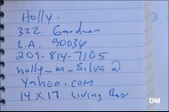 Holly.
322 Gardner
L.A. 90036
209-814-7105
holly_m_Silva@
Yahoo.com
14 x 17 Living Room
DM